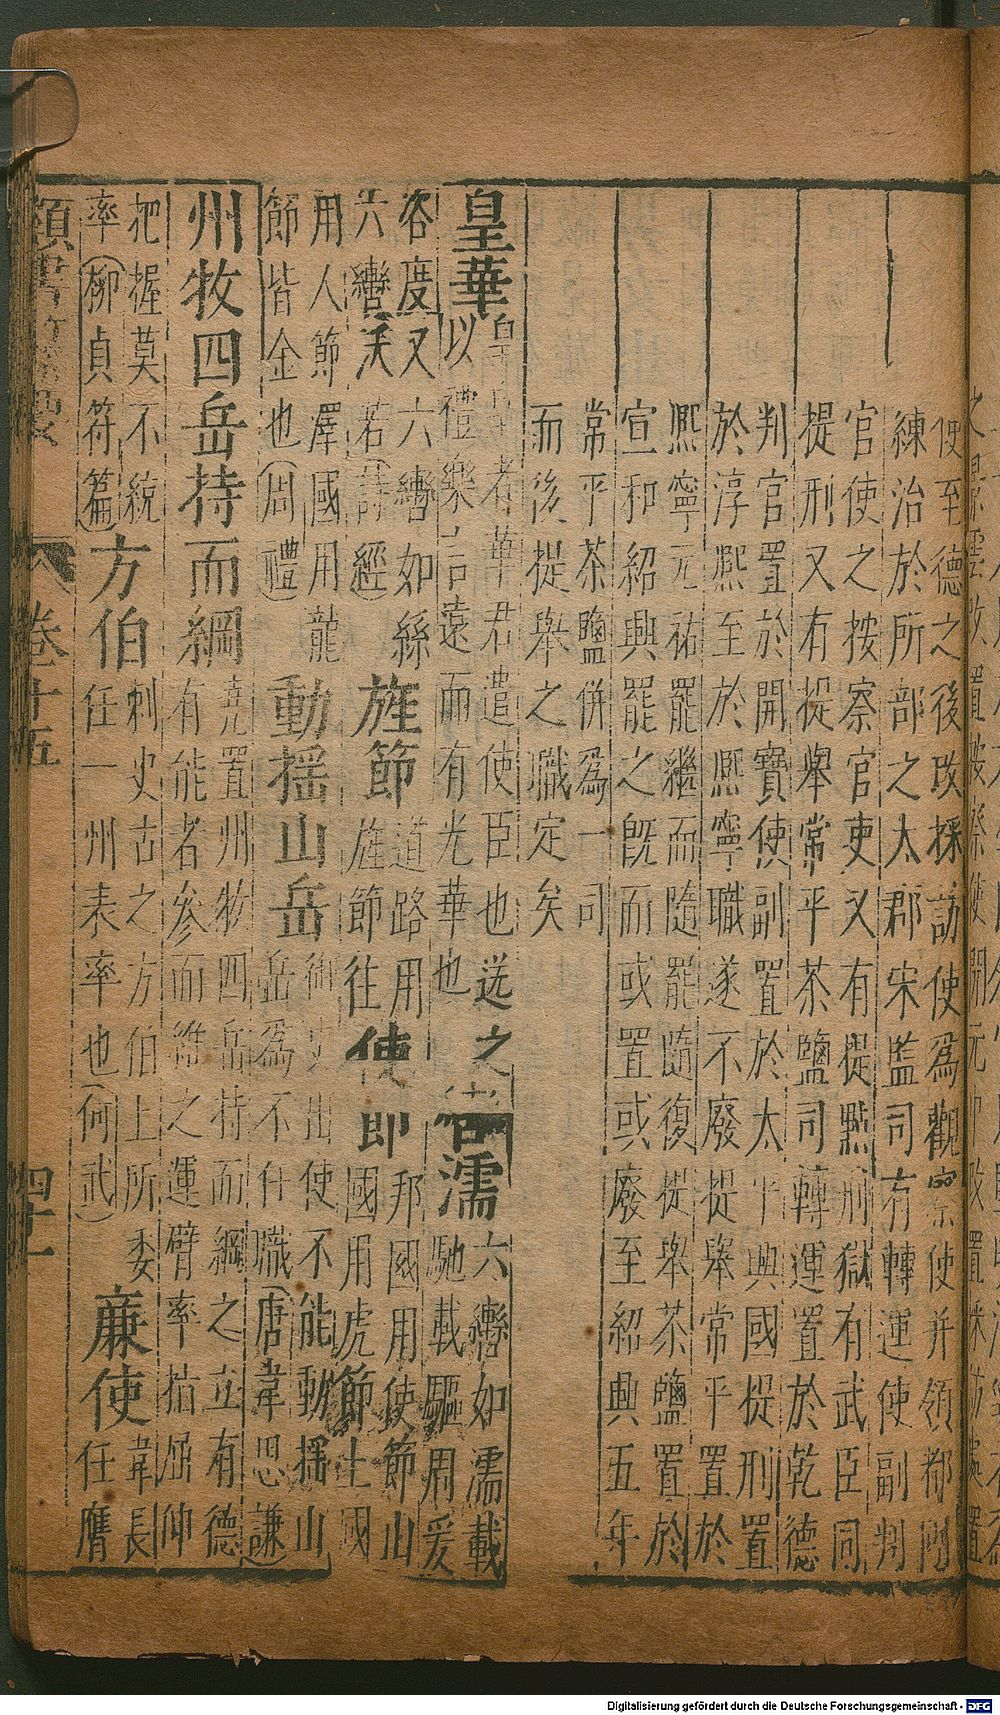 使至德之後改採訪使為觀察使并領都團
練治於所部之大郡宋監司有轉運使副判
官使之按察官吏又有提點刑獄有武臣同
提刑又有提舉常平茶鹽司轉運置於乾德
判官置於開寶使副置於太平興國提刑置
於淳熙至於熙寧職遂不廢提舉常平置於
熙寧元祐罷繼而隨罷隨復提舉茶鹽置於
宣和紹興罷之既而或置或廢至紹興五年
常平茶鹽併爲一司
而後提舉之職定矣
皇華 皇皇者華君遣使臣也送之以禮樂言遠而有光華也 咨濡 六轡如濡載馳載驅周爰
咨度又六轡如絲六轡沃若(詩經) 旌節 道路用旌節往 使即 邦國用使節山國用虎節土國
用人節澤國用龍節皆金也(周禮) 動搖山岳 御史出使不能動搖山岳爲不任職(唐韋思謙)
州牧四岳持而綱 堯置州牧四岳持而綱之立有德有能者參而維之運臂率指屈伸
把握莫不統率(柳貞符篇) 方伯 刺史古之方伯上所委任一州表率也(何武) 廉使 韋長任膺
類書纂要 卷十五 四十一
Digitalisierung gefördert durch die Deutsche Forschungsgemeinschaft - DFG